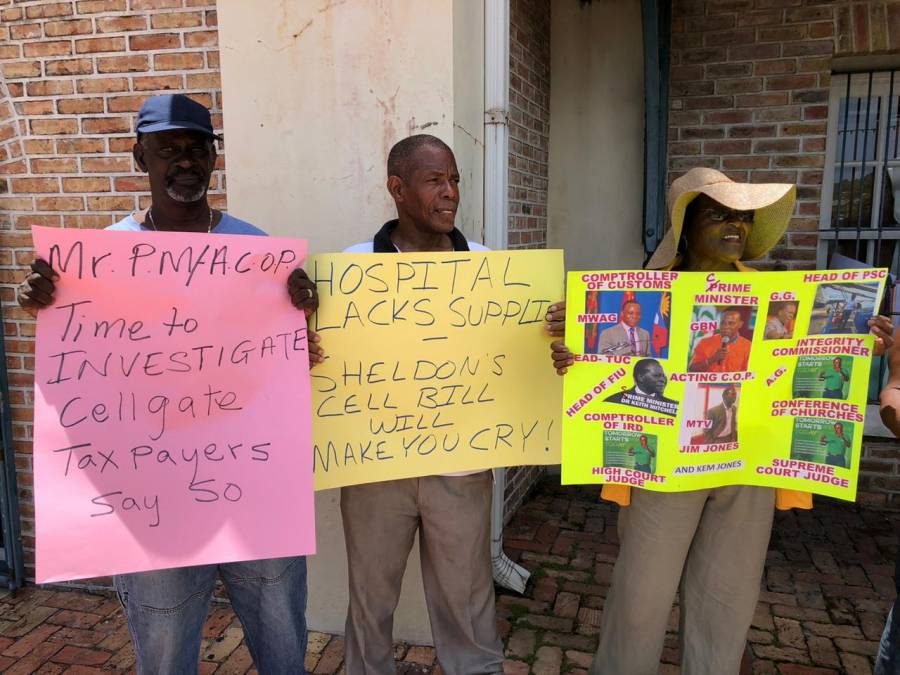 Mr. P.M/A.C.O.P.
Time to
INVESTIGATE
Cellgate
Tax Payers
Say So
HOSPITAL
LACKS SUPPLI
—
SHELDON'S
CELL BILL
WILL
MAKE YOU CRY!
COMPTROLLER
OF CUSTOMS
MWAG
EAD- TUC
HEAD OF FIU
PRIME MINISTER
DR KEITH MITCHEL
COMPTROLLER
OF IRD
TOMORROW
STARTS
TODAY
HIGH COURT
JUDGE
PRIME
MINISTER
GBN
ACTING C.O.P.
MTV
JIM JONES
AND KEM JONES
G.G.
HEAD OF PSC
A.G.
INTEGRITY
COMMISSIONER
TOMORROW
STARTS
TODAY
CONFERENCE
OF CHURCHES
TOMORROW
STARTS
TODAY
SUPREME
COURT JUDGE